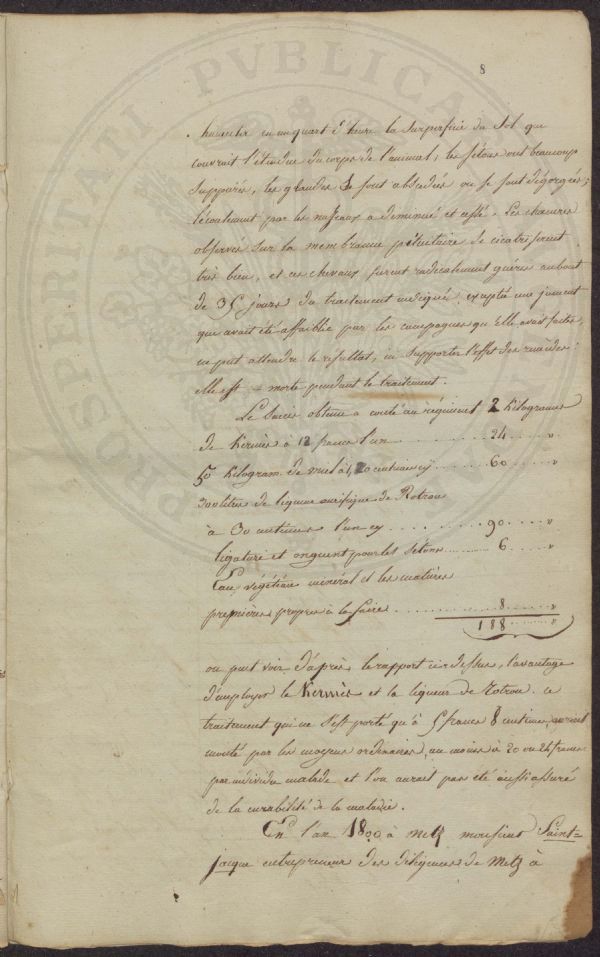 8
humecter en un quart d'heure la Surperficie du Sol que
couvrait l'étendue du corps de l'animal, les Sétons ont beaucoup
Suppurés, les glandes Se sont abscedées ou se sont dégorgées;
l'écoulement par les naseaux a diminué et cessé. Les chancres
observés Sur la membranne pituitaire Se cicatriserent
très bien, et ces chevaux furent radicalement guéris au bout
de 35 jours du traitement indiqué, exceptée une jument
qui avait été affaiblie par les campagnes qu'Elle avait faites,
ne put attendre le résultat, ni Supporter l'effet des remèdes:
elle est morte pendant le traitement.
Le Succes obtenu a couté au régiment 2 Kilogrames
de Kermès à 12 francs l'un 24 "
50 Kilogram. de miel à 1,20 centimes cy 60 "
300 litres de liqueur de Rotrou
à 30 centimes l'un cy 90 "
ligature et onguent pour les Sétons 6 "
Eau végétau minéral et les matières
premières propres à la faire 8 "
188 "
on peut voir d'après le rapport ci-dessus, l'avantage
d'employer le Kermès et la liqueur de Rotrou. ce
traitement qui ne s'est porté qu'à 5 francs 8 centimes,
couté par les moyens ordinaires, au moins à 20 ou 24 francs
par individu malade et l'on aurait pas été aussi assuré
de la curabilité de la maladie.
En l'an 1800 à Metz monsieur Saint=
jacque entrepreneur des diligences de Metz à
PROSPERITATI PVBLICA